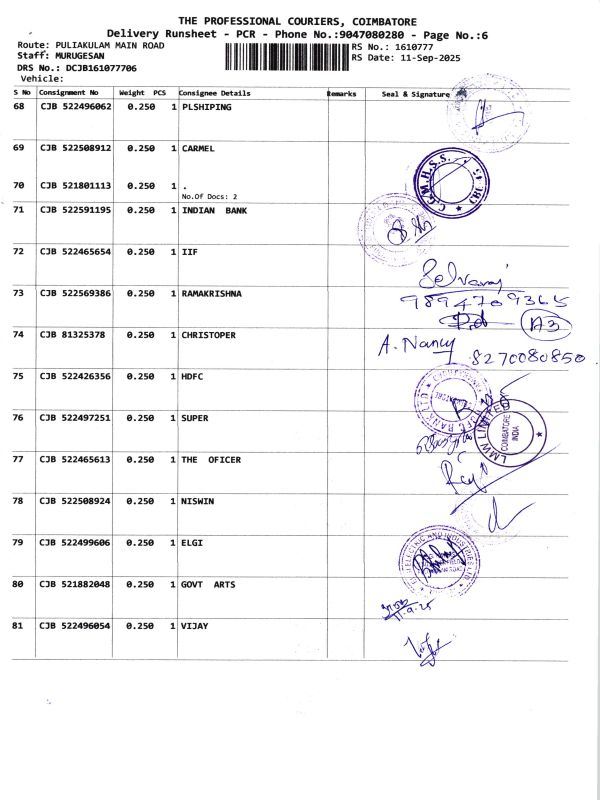 THE PROFESSIONAL COURIERS, COIMBATORE
Delivery Runsheet - PCR - Phone No.:9047080280 - Page No.:6
Route: PULIAKULAM MAIN ROAD RS No.: 1610777
Staff: MURUGESAN RS Date: 11-Sep-2025
DRS No.: DCJB161077706
Vehicle:
S No Consignment No Weight PCS Consignee Details Remarks Seal & Signature
68 CJB 522496062 0.250 1 PLSHIPING
69 CJB 522508912 0.250 1 CARMEL
70 CJB 521801113 0.250 1 .
No.Of Docs: 2
71 CJB 522591195 0.250 1 INDIAN BANK
72 CJB 522465654 0.250 1 IIF
Selvaraj
73 CJB 522569386 0.250 1 RAMAKRISHNA
9894709365
A3
74 CJB 81325378 0.250 1 CHRISTOPER
A. Nancy 8270080850
75 CJB 522426356 0.250 1 HDFC
76 CJB 522497251 0.250 1 SUPER
LMW LIMITED
COIMBATORE
INDIA
77 CJB 522465613 0.250 1 THE OFICER
78 CJB 522508924 0.250 1 NISWIN
79 CJB 522499606 0.250 1 ELGI
80 CJB 521882048 0.250 1 GOVT ARTS
11.9.25
81 CJB 522496054 0.250 1 VIJAY